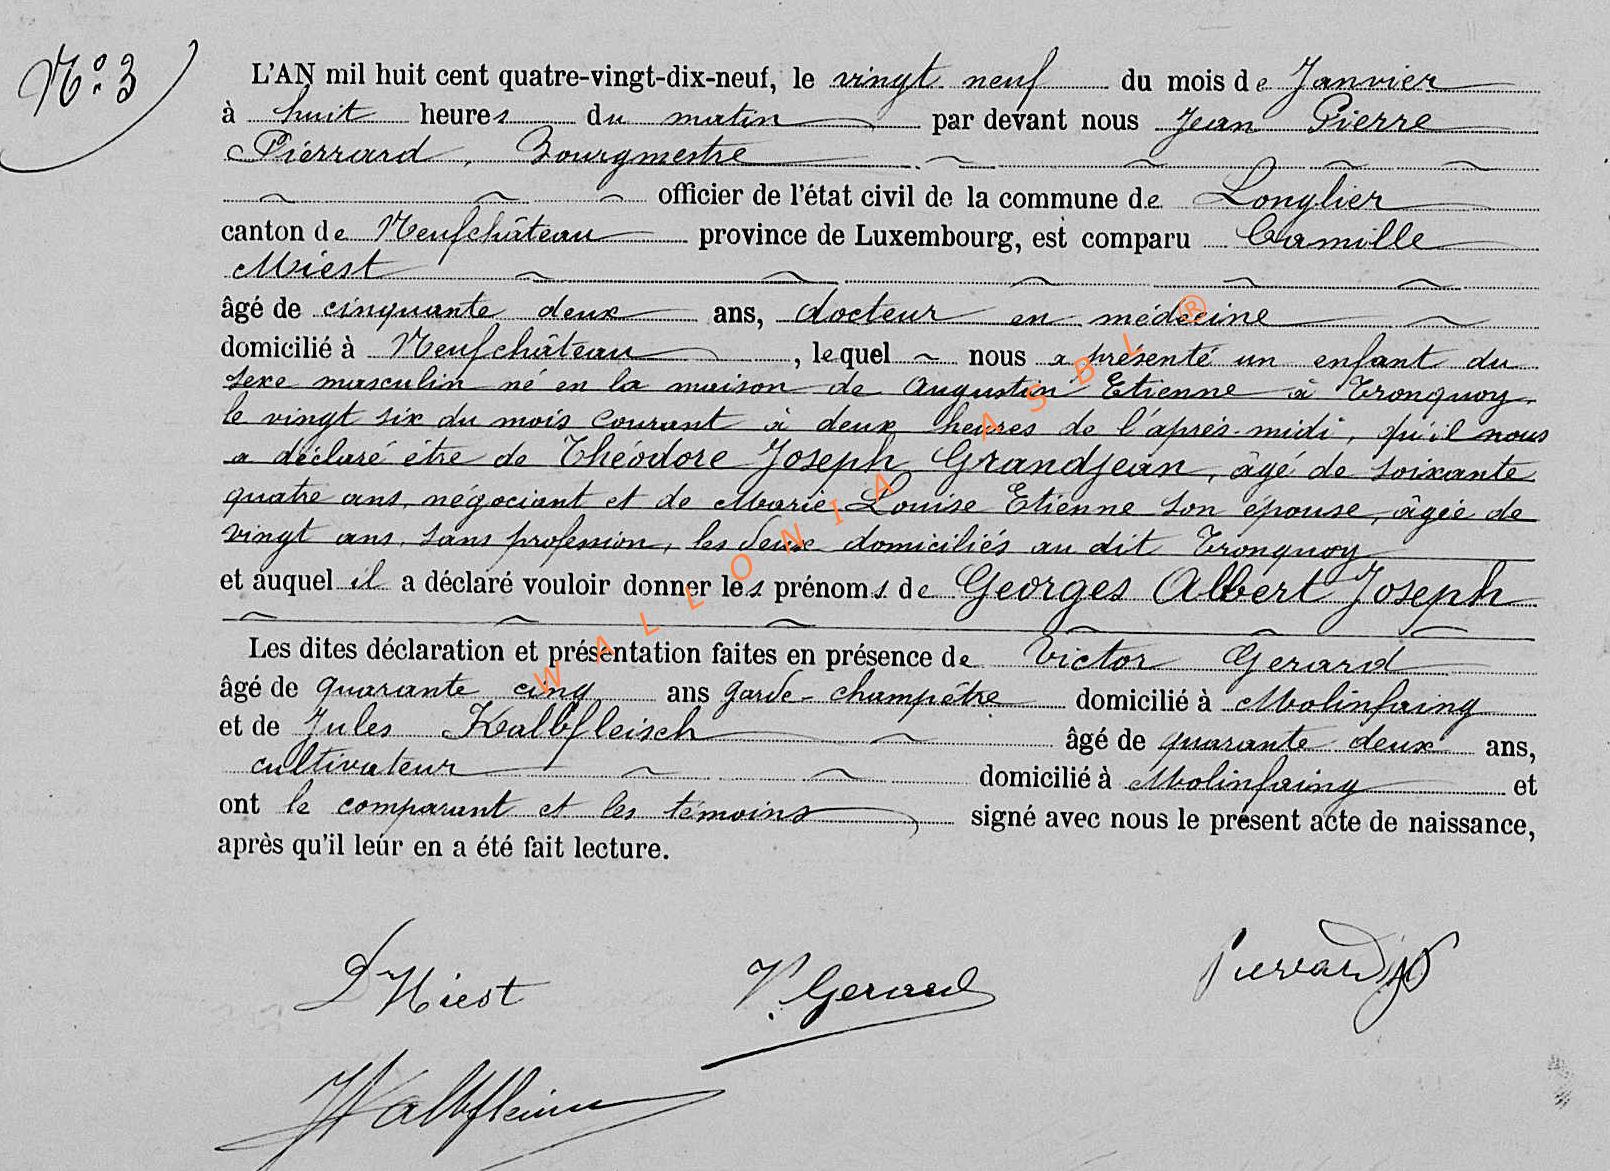 N° 3
L'AN mil huit cent quatre-vingt-dix-neuf, le vingt neuf du mois de Janvier
à huit heures du matin par devant nous Jean Pierre
Piérrard, Bourgmestre
officier de l'état civil de la commune de Longlier
canton de Neufchâteau province de Luxembourg, est comparu Camille
Miest
âgé de cinquante deux ans, docteur en médecine
domicilié à Neufchâteau, lequel nous a présenté un enfant du
sexe masculin né en la maison de Augustin Etienne à Tronquoy,
le vingt six du mois courant à deux heures de l'après-midi, qu'il nous
a déclaré être de Théodore Joseph Grandjean, âgé de soixante
quatre ans, négociant et de Marie Louise Etienne son épouse, âgée de
vingt ans, sans profession, les deux domiciliés au dit Tronquoy
et auquel il a déclaré vouloir donner les prénoms de Georges Albert Joseph
Les dites déclaration et présentation faites en présence de Victor Gerard
âgé de quarante cinq ans garde-champêtre domicilié à Molinfaing
et de Jules Kalbfleisch âgé de quarante deux ans,
cultivateur domicilié à Molinfaing et
ont le comparant et les témoins signé avec nous le présent acte de naissance,
après qu'il leur en a été fait lecture.
WALLONIA ASBL ®
Dr Miest V. Gerard Pierrard